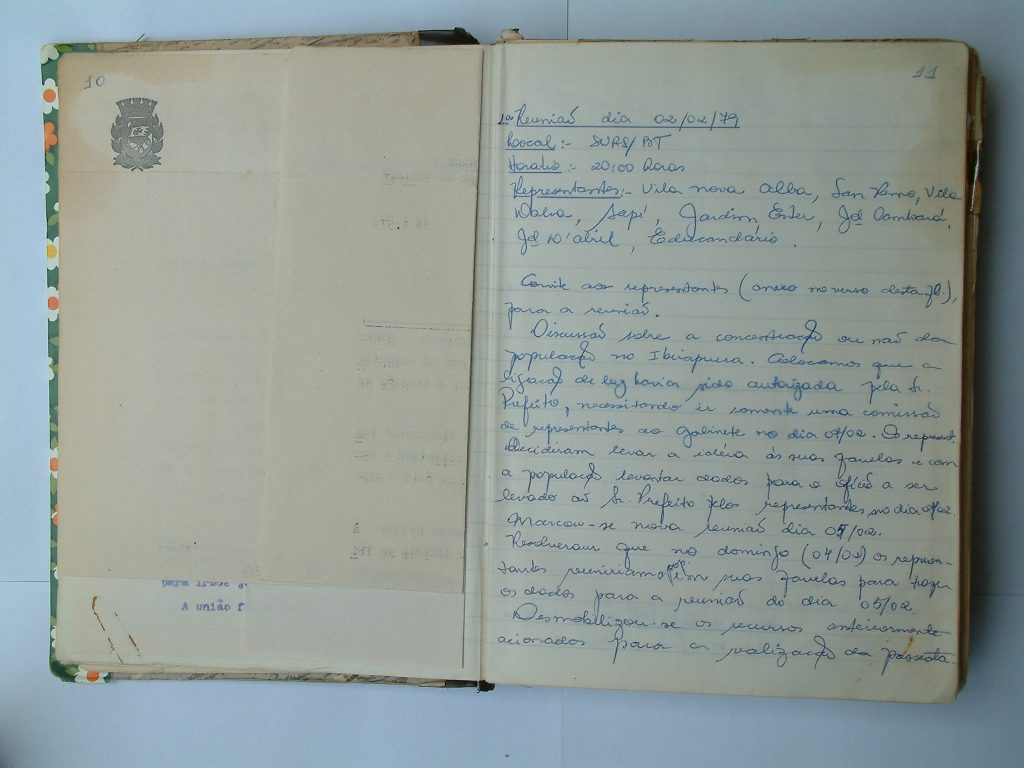 10
para irmos
A união f
11
1ª Reunião dia 02/02/79
Loocal:- SURS/
Horario:- 20:00 horas
Representantes:- Vila nova alba, San Remo, Vila
Dalva, Sapé, Jardim Ester, Jd Cambará,
Jd D'abril, Educandário.
Convite aos representantes (anexo no verso desta fl.),
para a reunião.
Discussão sobre a concentração ou não da
população no Ibirapuera. Colocamos que a
ligação de luz havia sido autorizada pelo Sr.
Prefeito, necessitando ir somente uma comissão
de representantes ao gabinete no dia 07/02. Os represent.
decidiram levar a idéia às suas favelas e com
a população levantar dados para o ofício a ser
levado ao Sr. Prefeito pelos representantes no dia 07/02.
Marcou-se nova reunião dia 05/02.
Resolveram que no domingo (04/02) os represen-
tantes reuniriam em suas favelas para trazer
os dados para a reunião do dia 05/02.
Desmobilizou-se os recursos anteriormente
acionados para a realização da passeata.